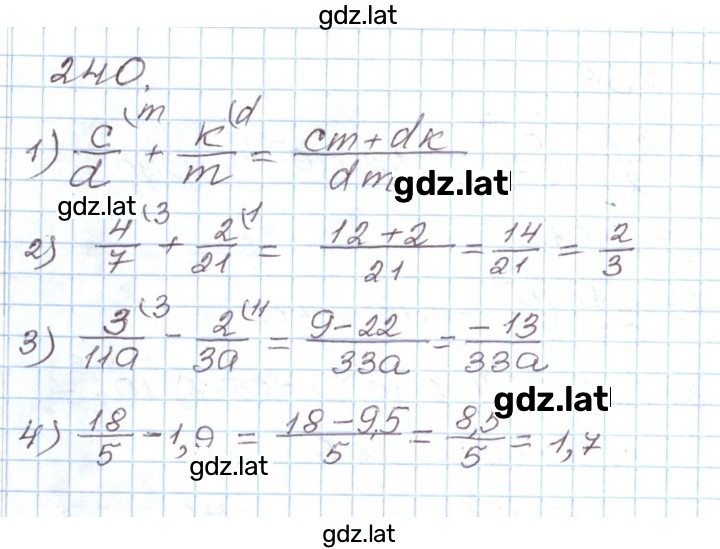 gdz.lat
240.
1) c/d (m + k/m (d = cm+dk/dm
gdz.lat
gdz.lat
2) 4/7 (3 + 2/21 (1 = 12+2/21 = 14/21 = 2/3
3) 3/11a (3 - 2/3a (11 = 9-22/33a = -13/33a
gdz.lat
4) 18/5 - 1,9 = 18-9,5/5 = 8,5/5 = 1,7
gdz.lat
gdz.lat